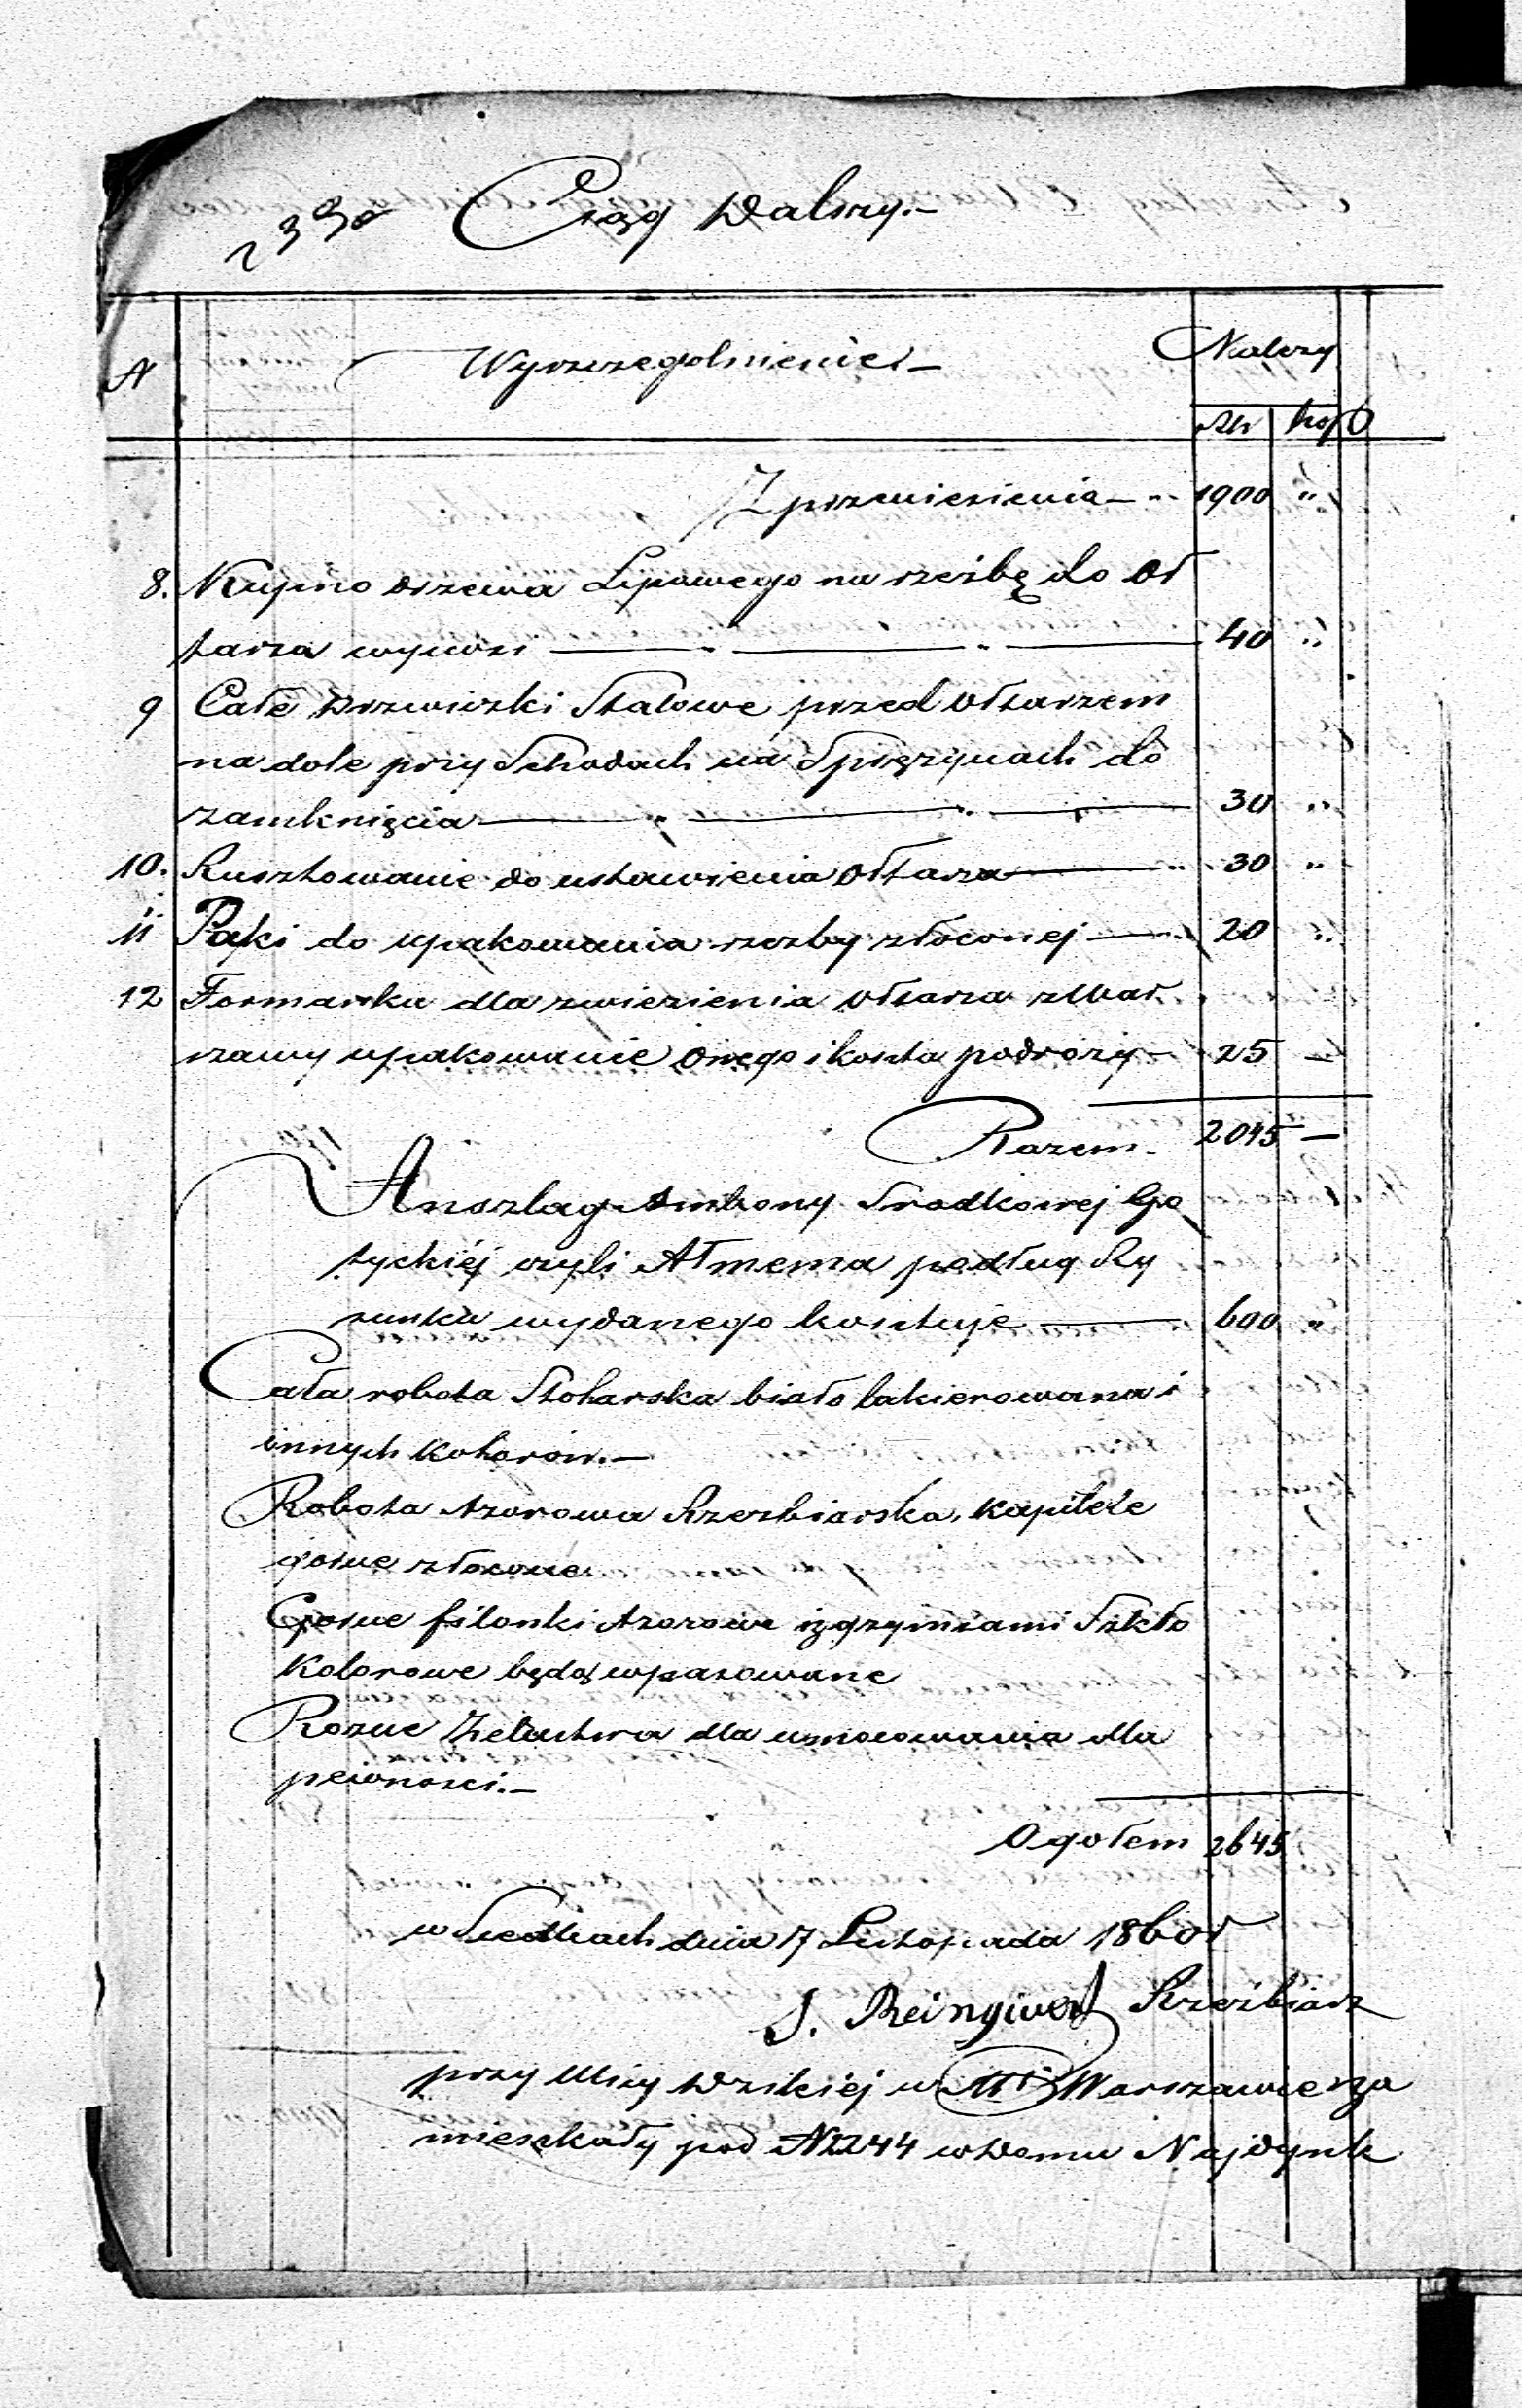 Ciąg Dalszy.—
N Wyszczegolnienie.— Należy
Rbr kop
Z przeniesienia — 1900 "
8. Kupno drzewa Lipowego na rzeźbę do Oł
tarza wynosi — 40 "
9 Całe Drzwiczki Stalowe przed Ołtarzem
na dole przy Schodach na Sprężynach do
zamknięcia — 30 "
10. Rusztowanie do ustawienia Ołtarza — 30 "
11 Paki do upakowania rzeźby złoconej — 20 "
12 Formanka dla zwiezienia ołtarza z War
szawy upakowanie onego i koszta podroży — 25 —
Razem. 2045 —
Anszlag Ambony Srodkowej Go
tyckiéj czyli Ałmema podług Ry
sunku wydanego kosztuje — 600 "
Cała robota Stolarska biało lakierowana i
innych kolorow.—
Robota Azurowa Rzezbiarska, kapitele
gorne złocone
Gorne filonki Azorowe i z gzymsami Szkło
Kolorowe będą wpasowane
Rozne Zelastwa dla umocowania dla
pewnosci.—
Ogołem 2645
w Siedlcach dnia 7 Listopada 1860 r
S. Reingiwert Rzeźbiarz
przy Ulicy Dzikiéj w Mie Warszawie za
mieszkały pod N 2244 w Domu Najdynk